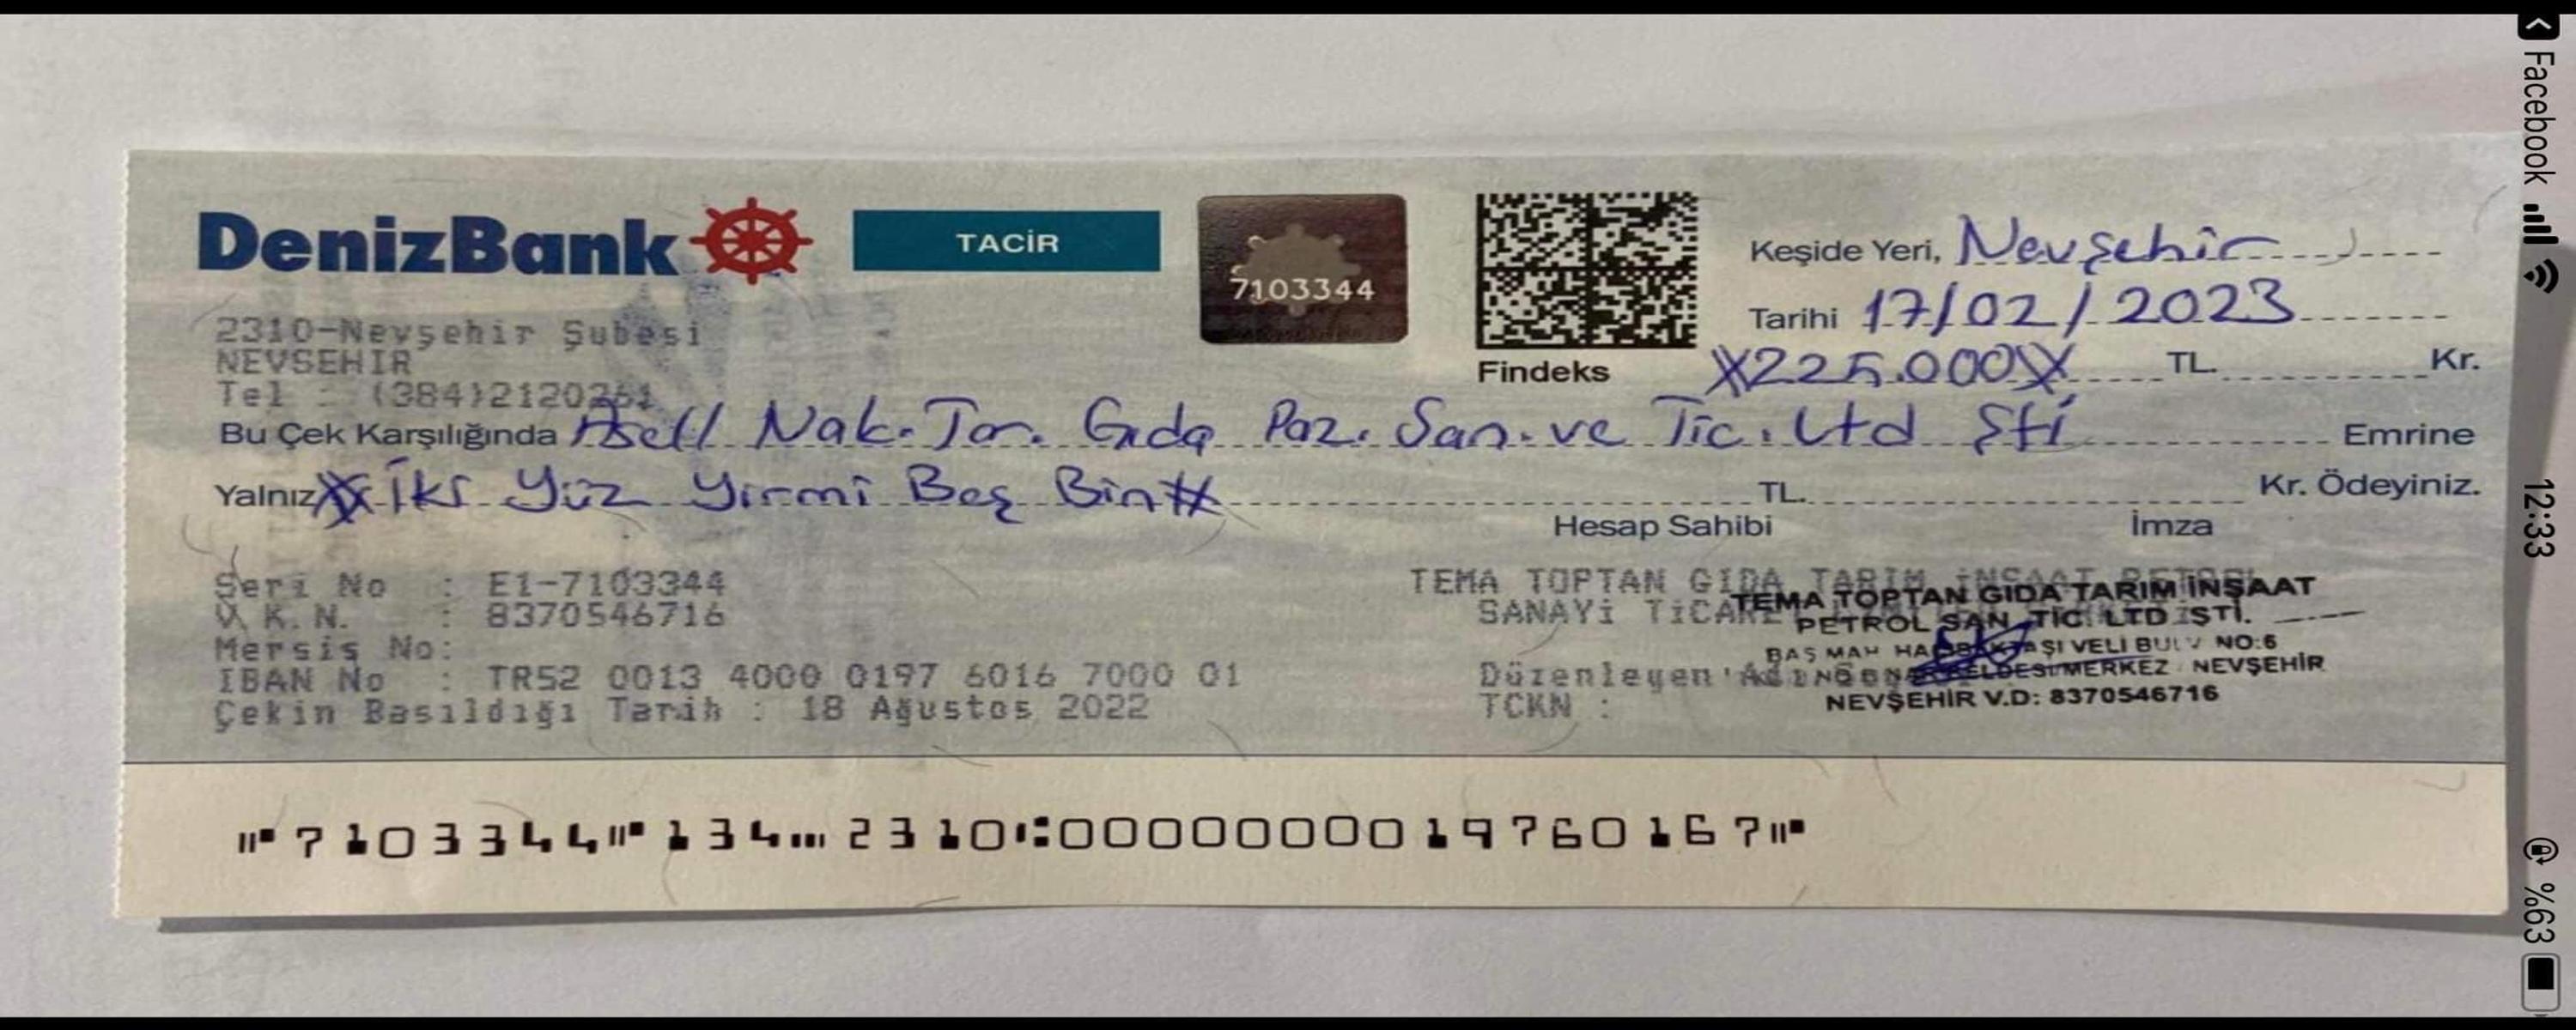 DenizBank
TACİR
7103344
Findeks
Keşide Yeri, Nevşehir
Tarihi 17/02/2023
X225.000X TL. Kr.
2310-Nevşehir Şubesi
NEVSEHIR
Tel : (384)2120261
Bu Çek Karşılığında Asell Nak. Tar. Gıda Paz. San. ve Tic. Ltd Şti Emrine
Yalnız İki Yüz Yirmi Beş Bin# TL. Kr. Ödeyiniz.
Hesap Sahibi İmza
Seri No : E1-7103344
V.K.N. : 8370546716
Mersis No:
IBAN No : TR52 0013 4000 0197 6016 7000 01
Çekin Basıldığı Tarih : 18 Ağustos 2022
TEMA TOPTAN GIDA TARIM İNŞAAT PETROL
SANAYİ TİCARET
Düzenleyen Adı
TCKN :
TEMA TOPTAN GIDA TARIM İNŞAAT
PETROL SAN. TİC. LTD. ŞTİ.
VELİ BULV NO:6
MERKEZ NEVŞEHİR
NEVŞEHİR V.D: 8370546716
⑈7103344⑈134⑉2310⑆0000000019760167⑈
Facebook
12:33
%63